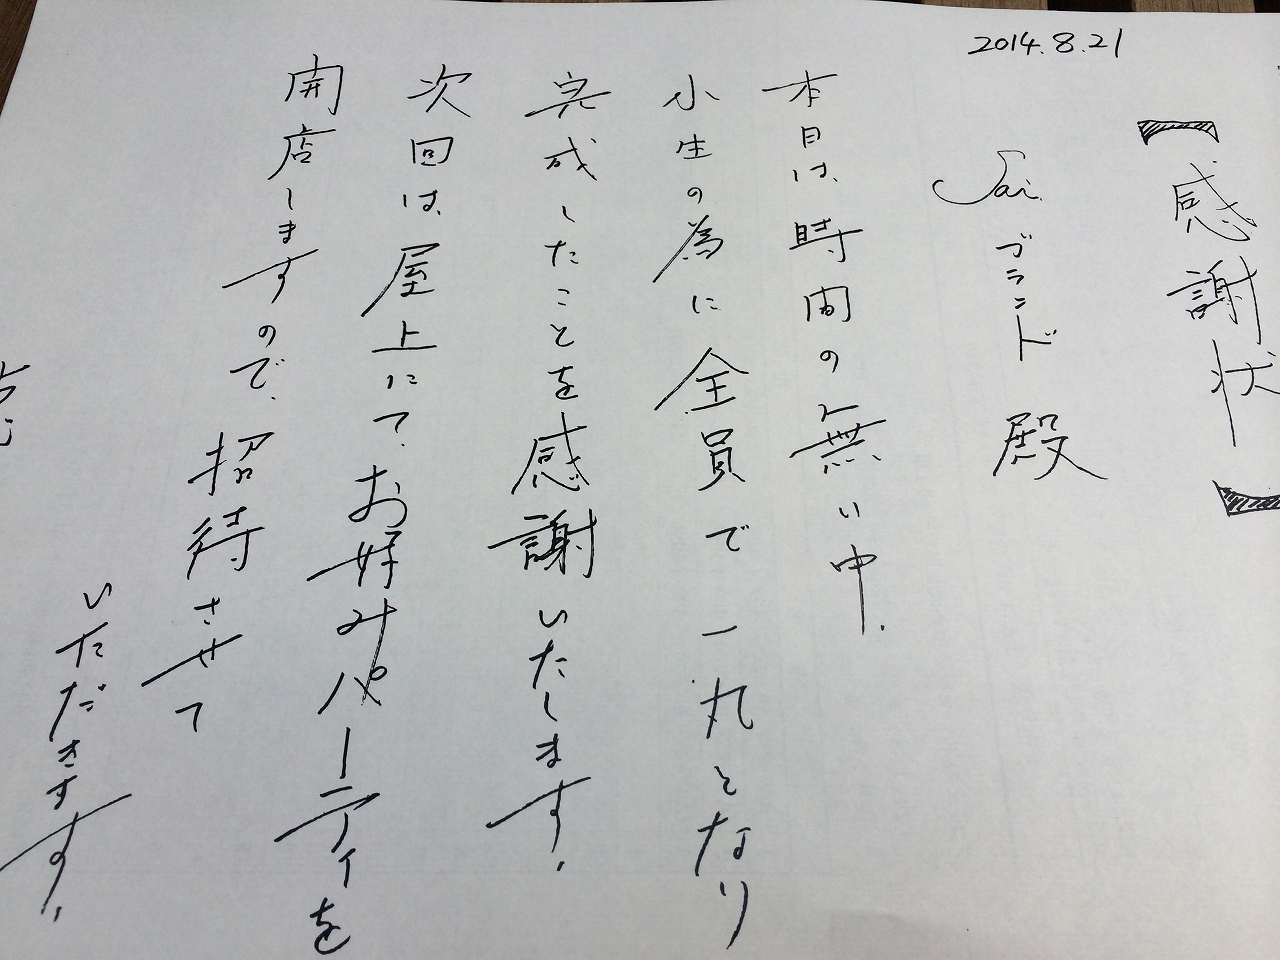 2014.8.21
【感謝状】
Sai.ブランド 殿
本日は、時間の無い中.
小生の為に全員で一丸となり
完成したことを感謝いたします.
次回は、屋上にて、お好みパーティを
開店しますので、招待させて
いただきます.